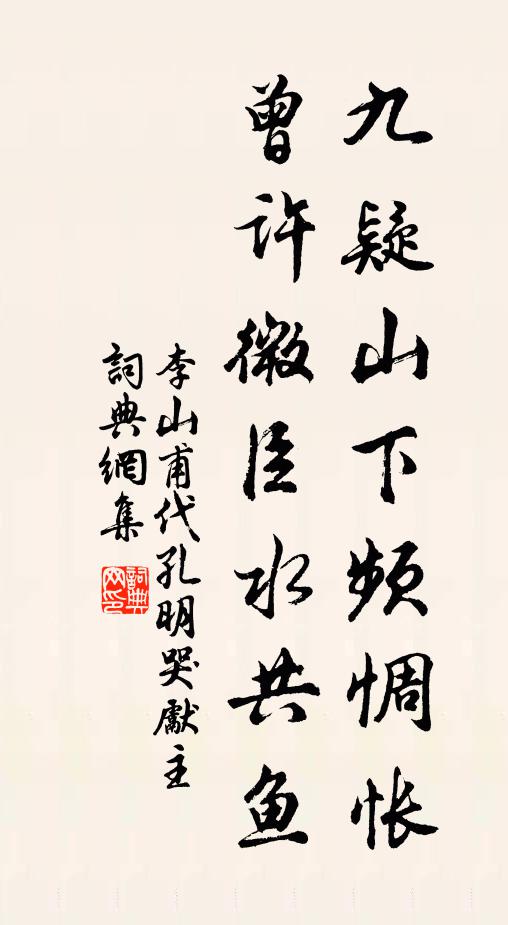 九疑山下頻惆怅
曾许微臣水共鱼
李山甫代孔明哭獻主
詞典網集
詞典网印